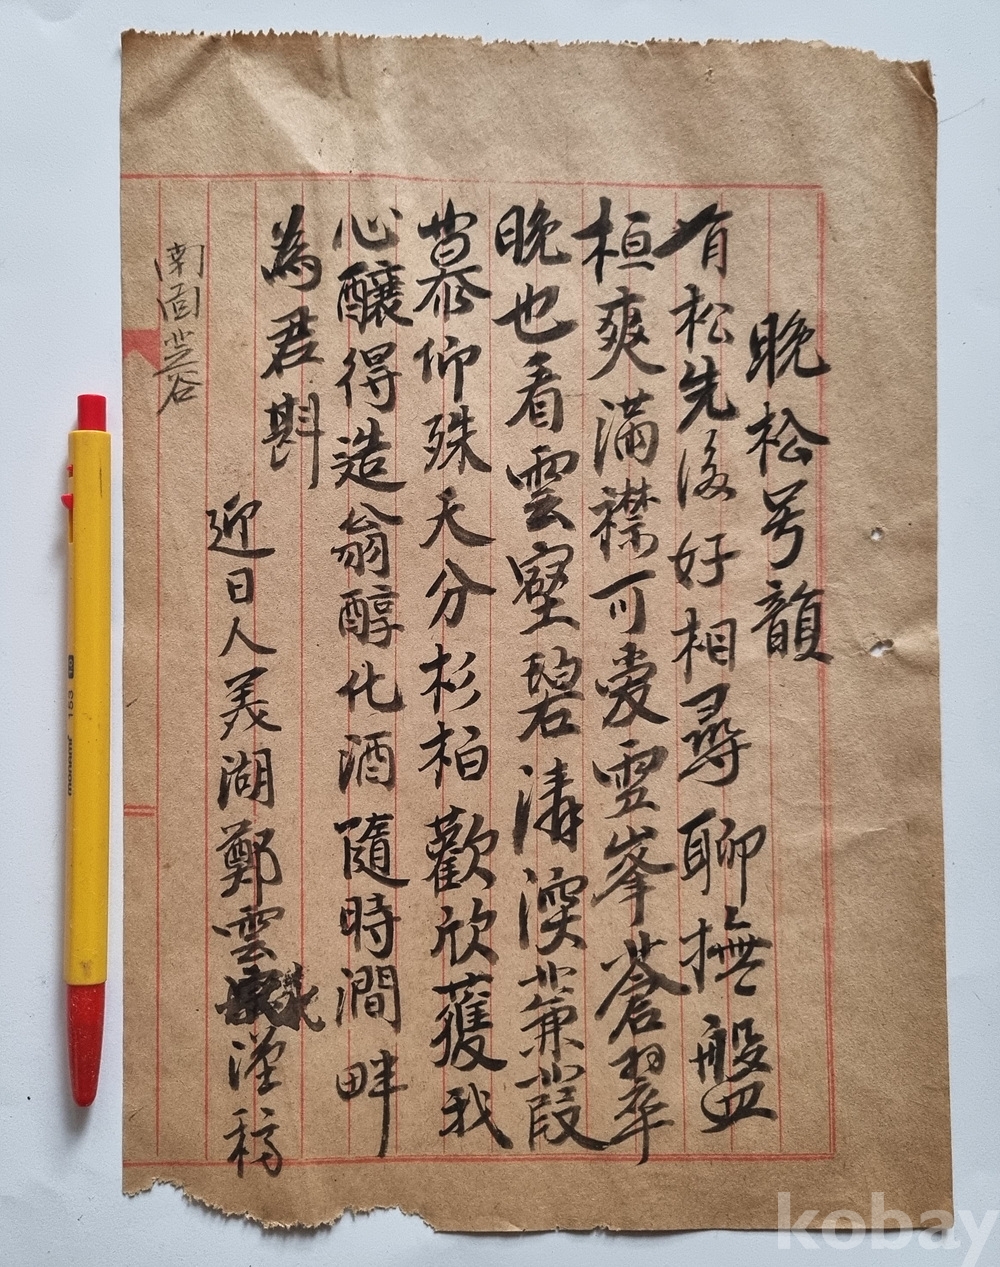 晩松号韻
有松先後好相尋聊撫盤
桓爽滿襟可愛雲峯蒼翠
晩也看雲壑碧溱濙蒹葭
慕仰殊天分杉柏歡欣獲我
心釀得造翁醇化酒隨時澗畔
為君斟
迎日人美湖鄭雲 謹稿
南固芸谷
monami 153 0.7
kobay